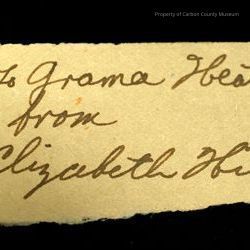 Property of Carbon County Museum
To Grama
from
Elizabeth